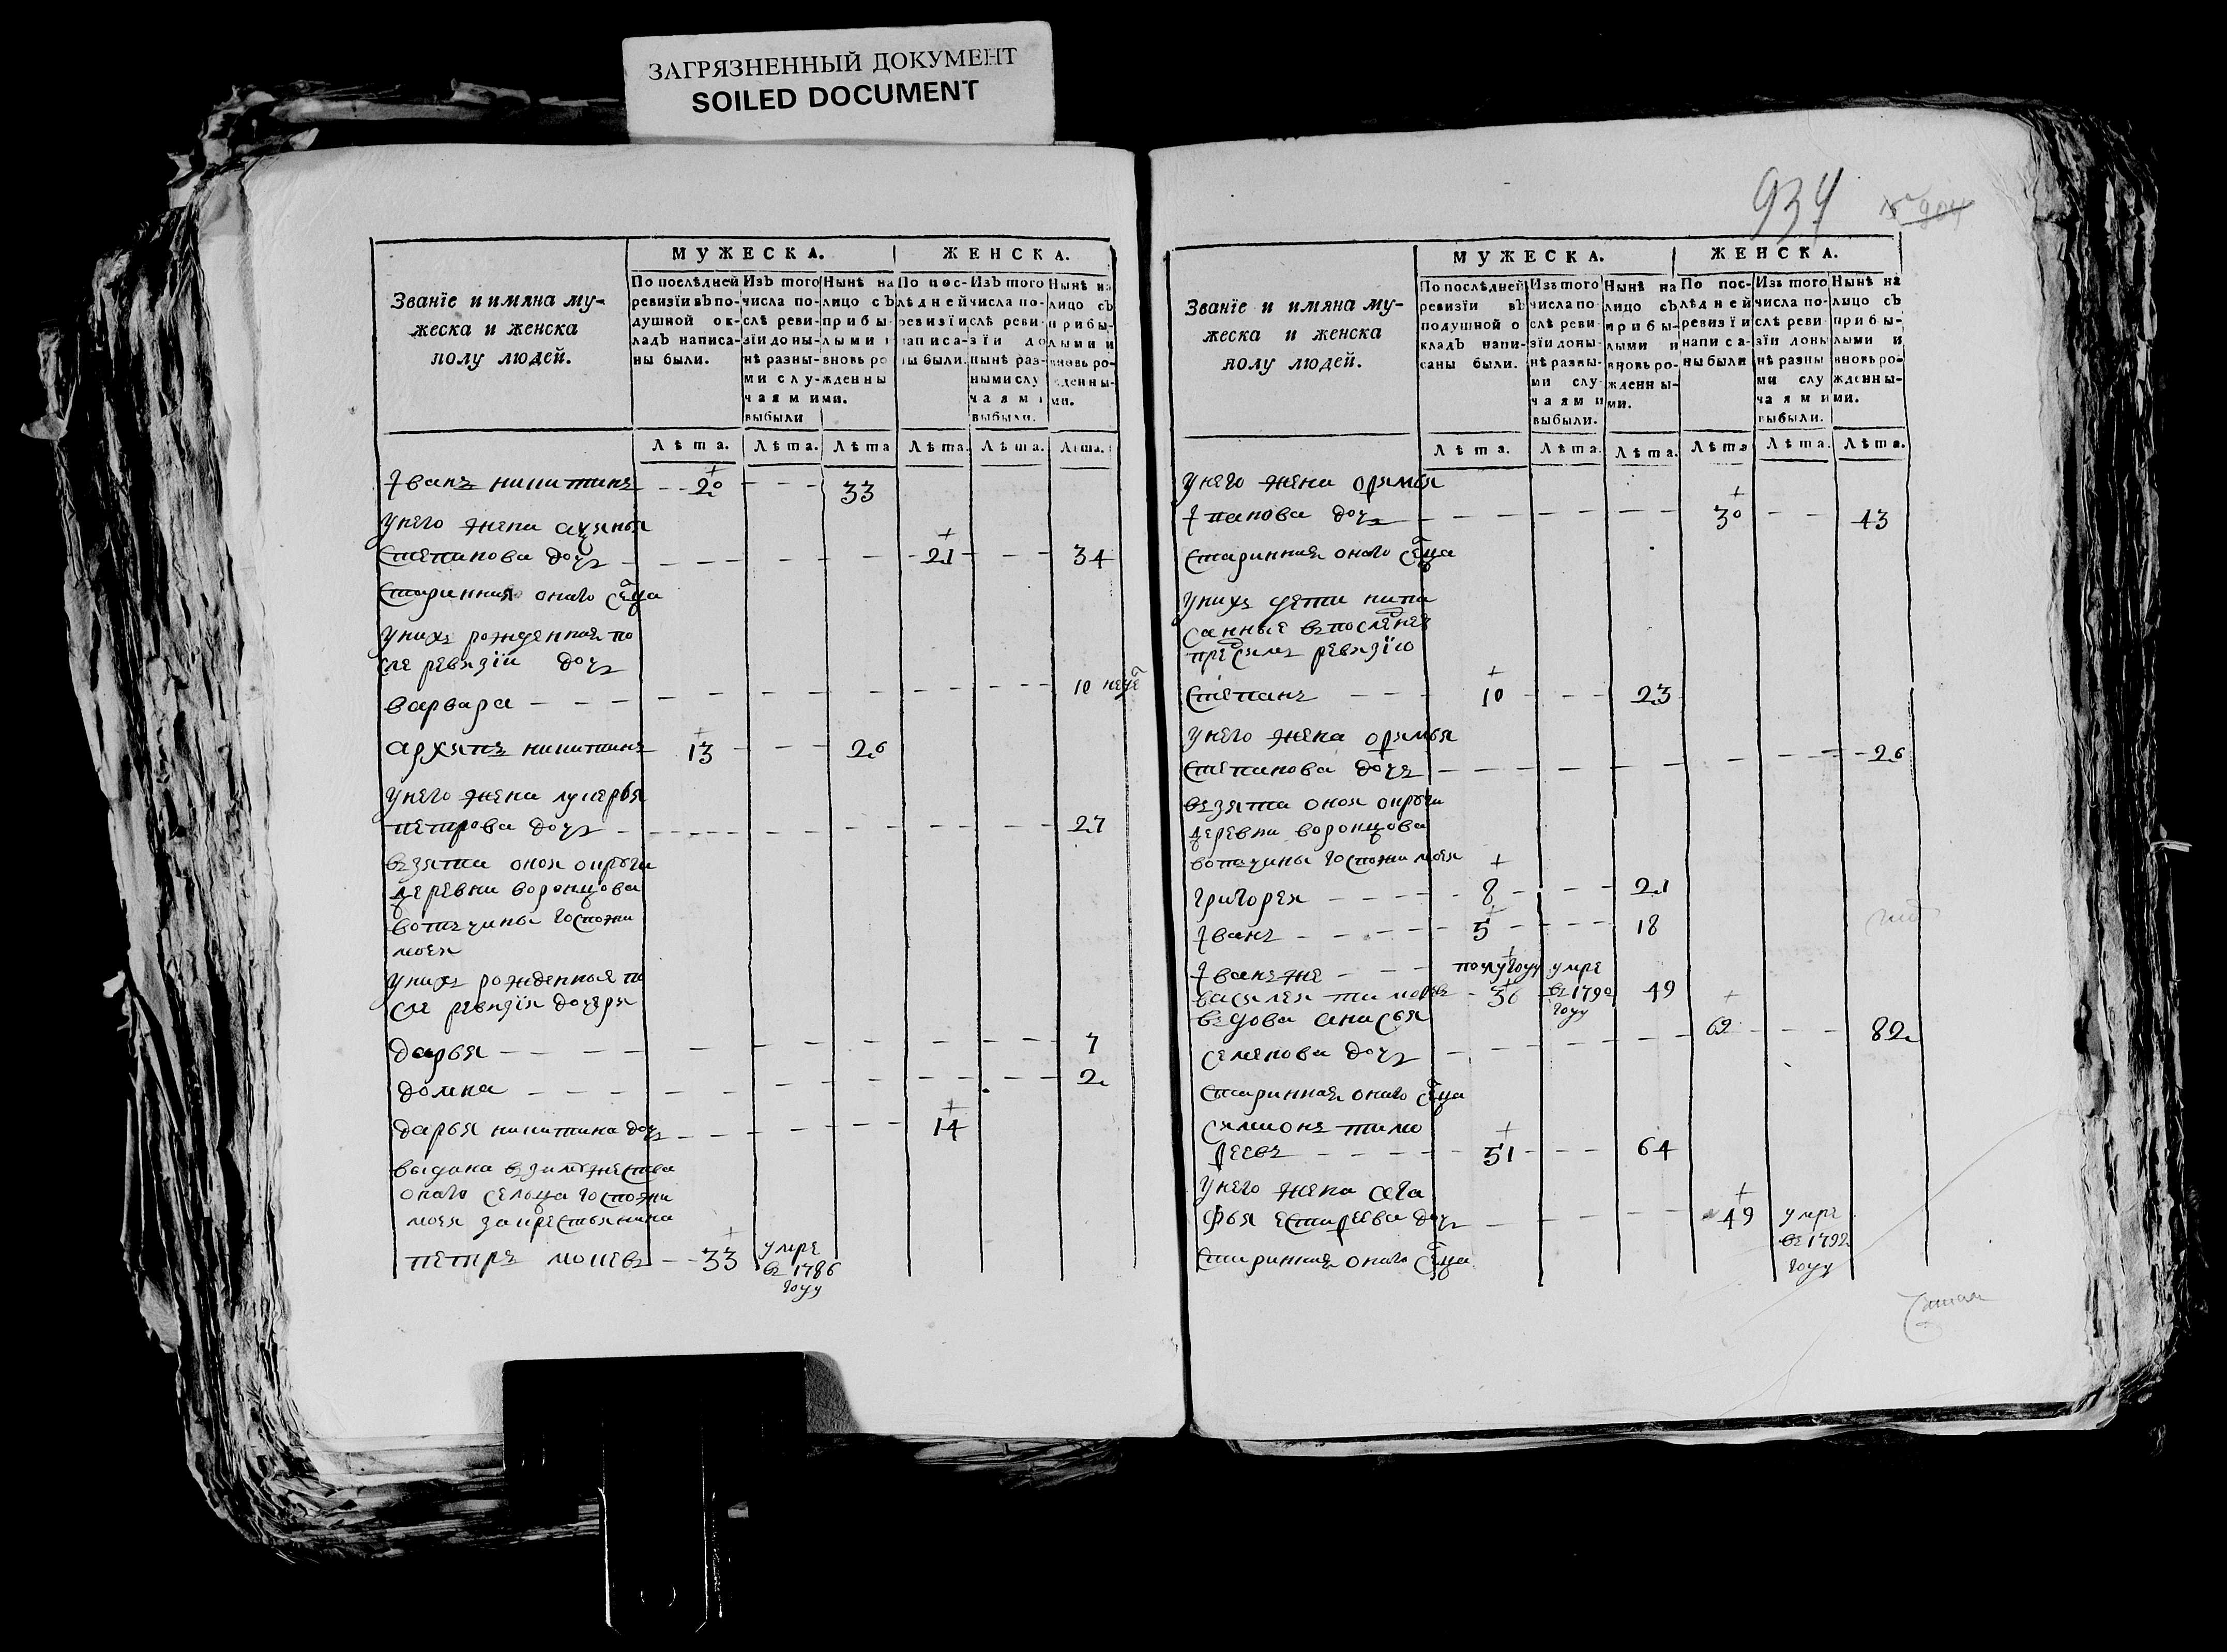 ЗАГРЯЗНЕННЫЙ ДОКУМЕНТ
SOILED DOCUMENT
МУЖЕСКА. ЖЕНСКА.
Званїе и имяна му-
жеска и женска
полу людей.
По послѣдней ревизїи въ по-душной ок-ладъ написа-ны были.
Изъ того числа по-слѣ реви-зїи доны-нѣ разны-ми слу-чаями выбыли
Нынѣ на лицо съ прибы лыми и вновь ро жденны ми.
По пос-лѣдней ревизїи написа-ны были.
Изъ того числа по-слѣ реви-зїи до нынѣ раз-ными слу чаями выбыли.
Нынѣ на лицо съ прибы-лыми и вновь ро-жденны-ми.
Лѣта. Лѣта. Лѣта Лѣта. Лѣта. Лѣта.
Іванъ никитинъ 20 33
у него жена
степанова дочь 21 34
старинная оного селца
у нихъ рожденная по
сле ревизіи дочь
варвара 10 недель
архипъ никитинъ 13 26
у него жена лукерья
петрова дочь 27
взята оной округи
деревни воронцова
вотчины госпожи
моей
у нихъ рожденные по
сле ревизіи дочери
дарья 7
домна 2
дарья никитина дочь 14
выдана взамужества
оного сельца госпожи
моей за крестьянина
петръ 33 умре
въ 1786
году
934
№ 904
МУЖЕСКА. ЖЕНСКА.
Званїе и имяна му-
жеска и женска
полу людей.
По послѣдней ревизїи въ подушной о кладъ напи-саны были.
Изъ того числа по слѣ реви зїи доны-нѣ разны-ми слу-чаями выбыли.
Нынѣ на лицо съ прибы-лыми и вновь ро-жденны-ми.
По пос-лѣдней ревизїи написа-ны были
Изъ того числа по-слѣ реви зїи доны нѣ разны ми слу чаями выбыли.
Нынѣ на лицо съ прибы-лыми и вновь ро-жденны-ми.
Лѣта. Лѣта. Лѣта. Лѣта Лѣта. Лѣта.
у него жена
дочь 30 43
старинная оного селца
у нихъ дети напи
санные въ последнею
пред симъ ревизію
степанъ 10 23
у него жена
степанова дочь 26
взята оной округи
деревни воронцова
вотчины госпожи моей
григорей 8 21
Іванъ 5 18
Іванъ же полугоду умре
василей тимофеевъ 36 въ 1790 49
году
вдова анисья 69 82
семенова дочь
старинная оного селца
симионъ тимо
феевъ 51 64
у него жена ага
фья дочь 49 умре
въ 1792
году
старинная оного селца